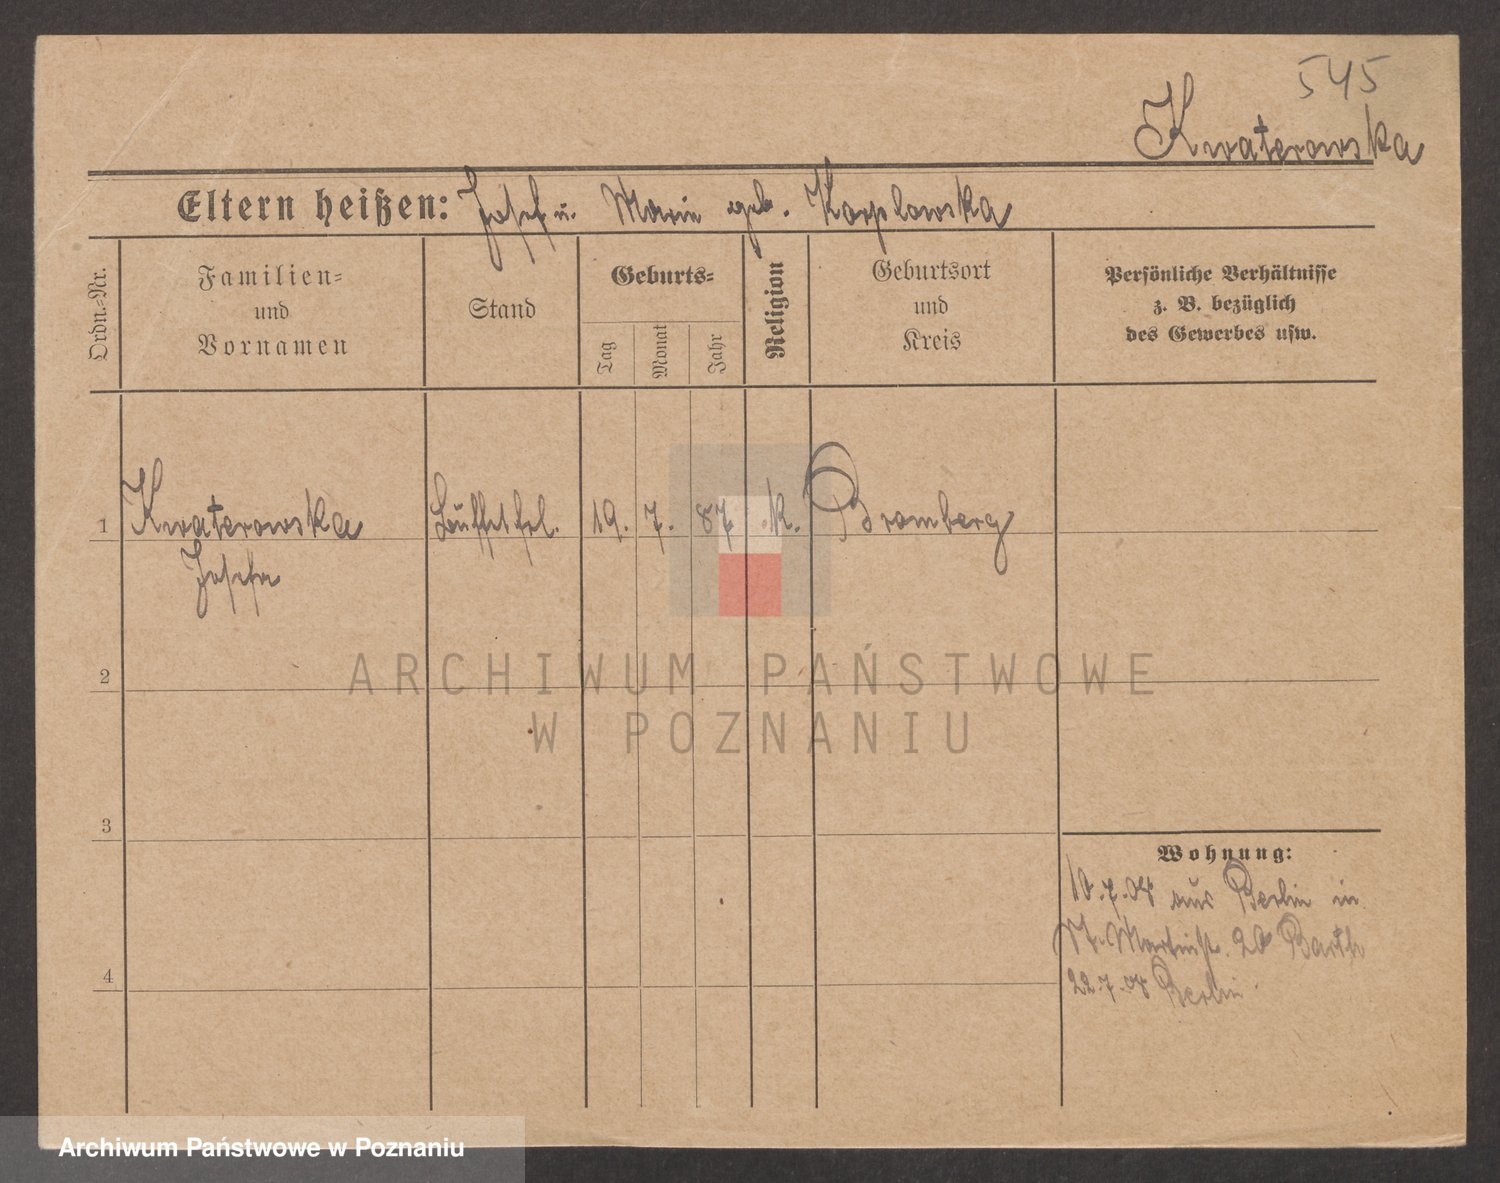 545
Kwaterowska
Eltern heißen: Josef u. Marie geb. Korplowska
Ordn.-Nr.
Familien-
und
Vornamen
Stand
Geburts-
Tag
Monat
Jahr
Religion
Geburtsort
und
Kreis
Persönliche Verhältnisse
z. B. bezüglich
des Gewerbes usw.
1 Kwaterowska Büffetfrl. 19. 7. 87 k. Bromberg
Josefa
2
ARCHIWUM PAŃSTWOWE
W POZNANIU
3
Wohnung:
10.7.08 aus Berlin in
St. Martinstr. 20 Barth
4
22.7.08 Berlin
Archiwum Państwowe w Poznaniu